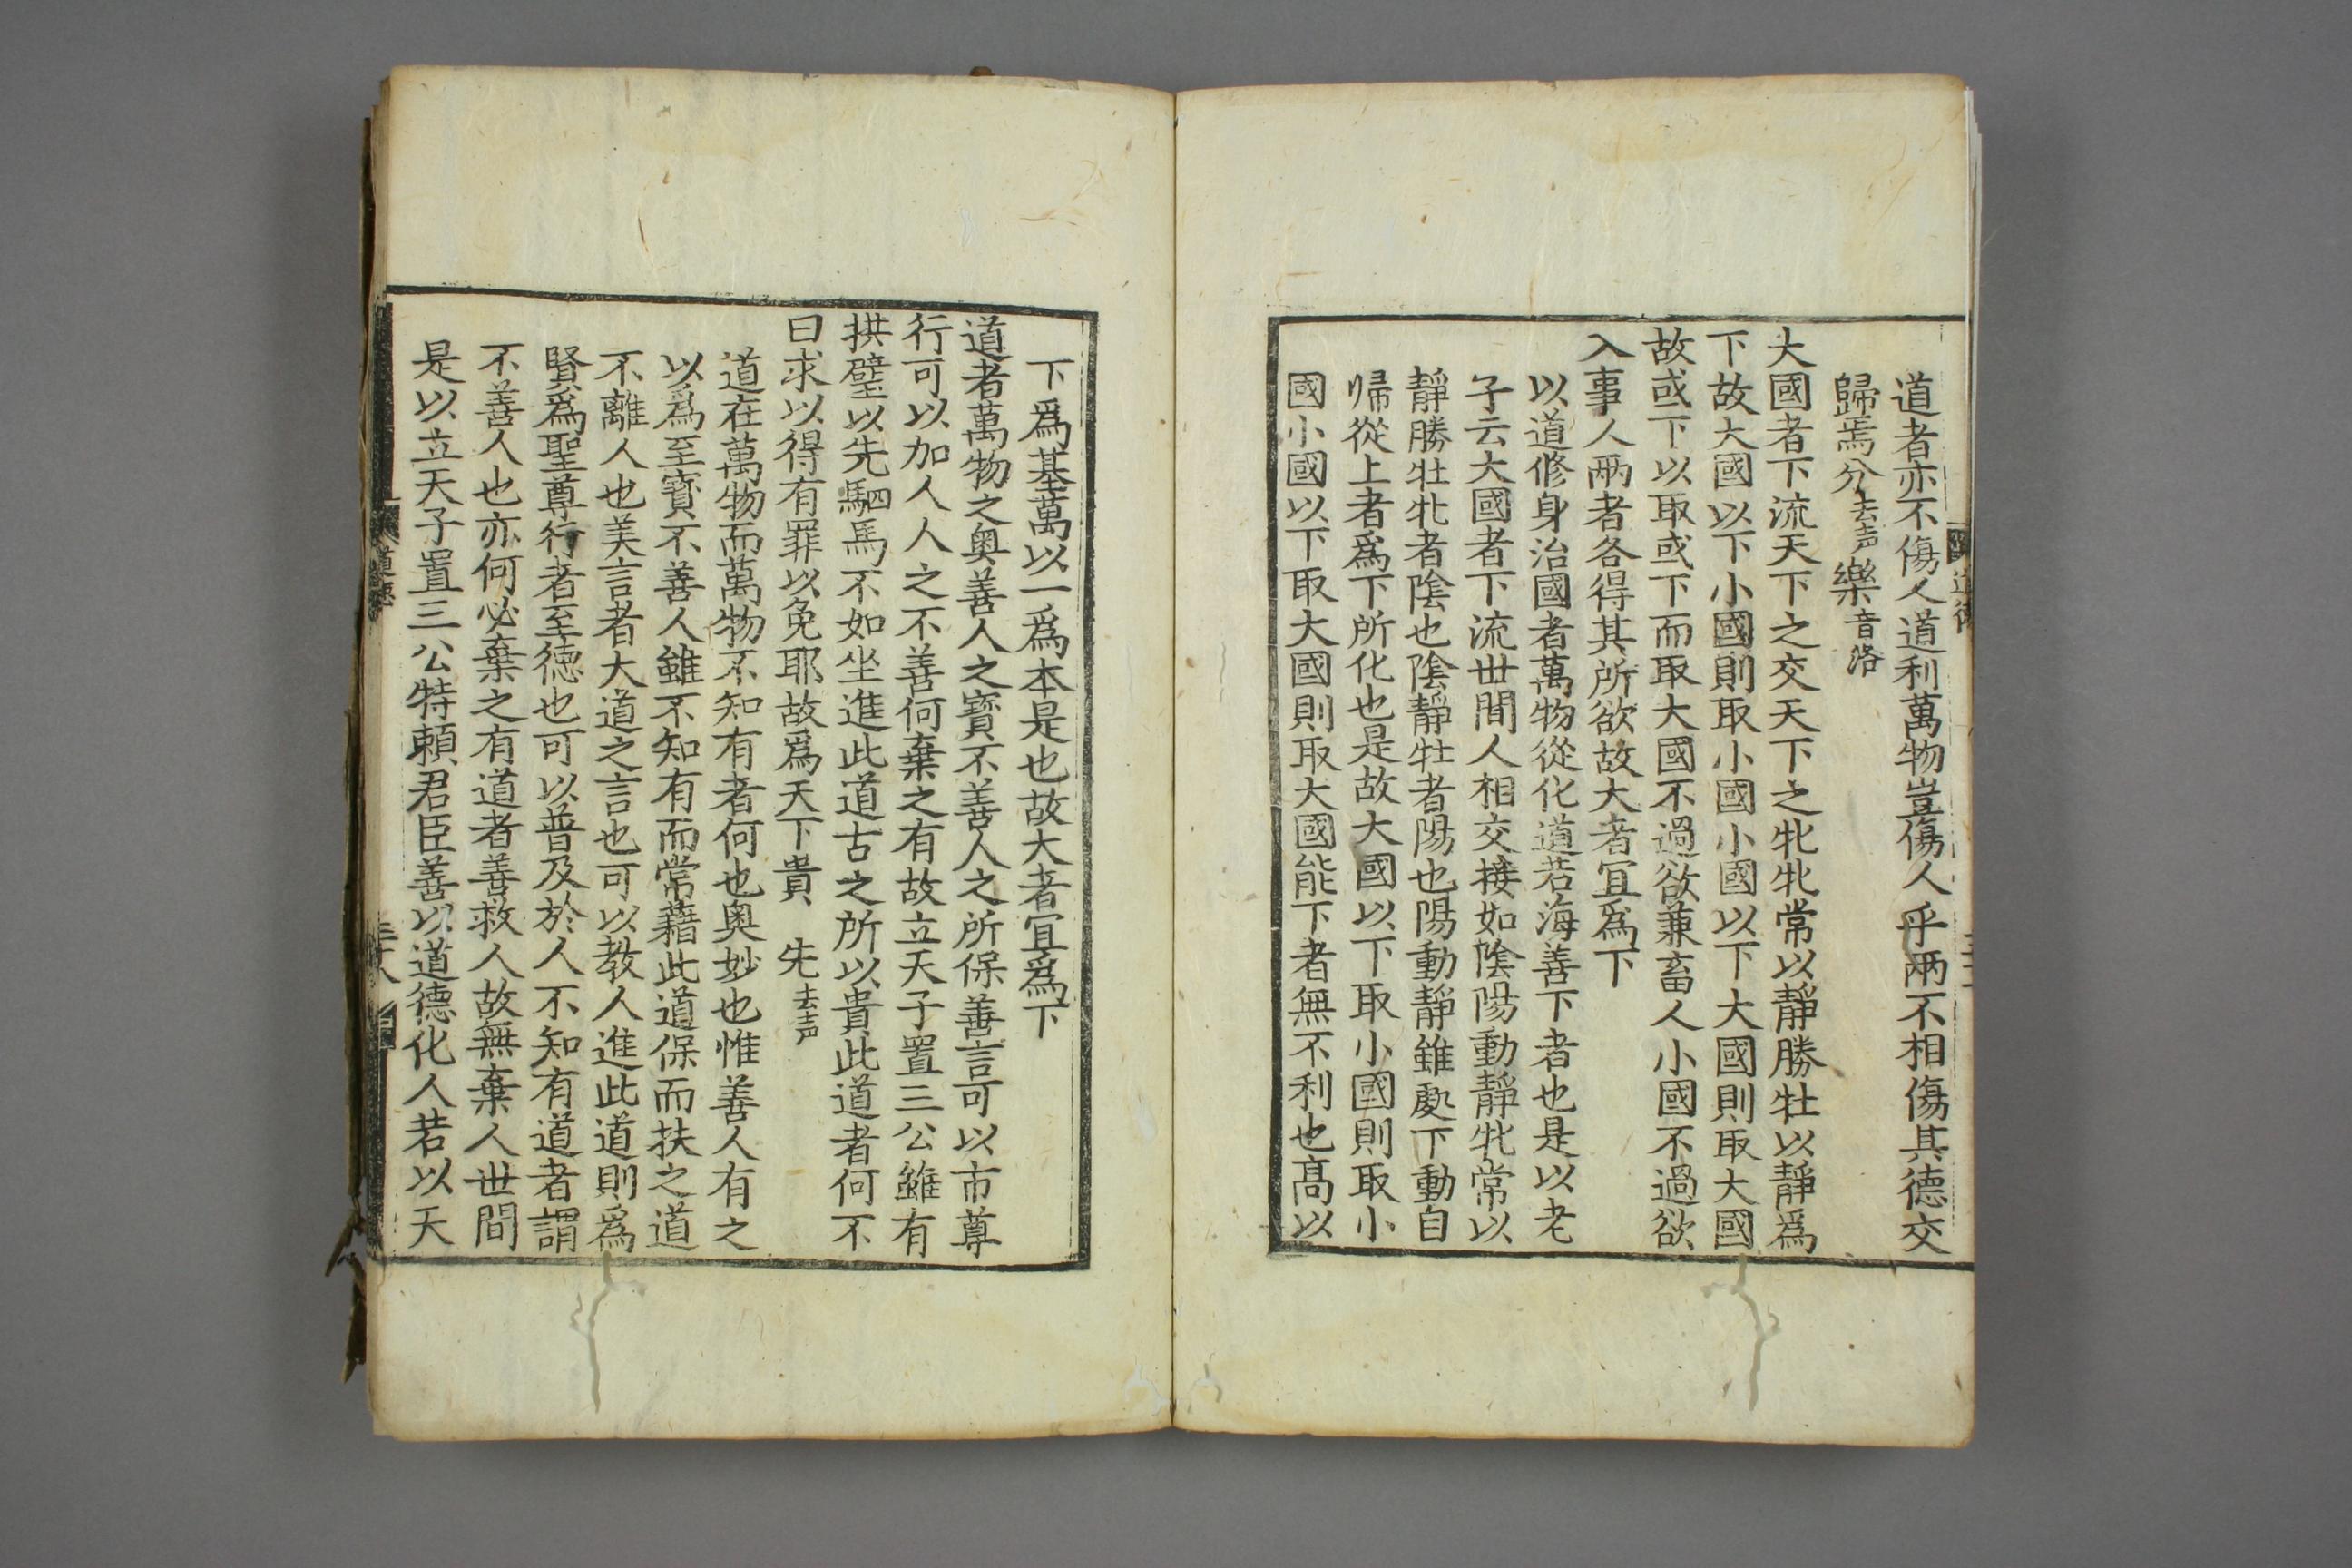 道者亦不傷人道利萬物豈傷人乎兩不相傷其德交
歸焉分去声樂音洛
大國者下流天下之交天下之牝牝常以靜勝牡以靜爲
下故大國以下小國則取小國小國以下大國則取大國
故或下以取或下而取大國不過欲兼畜人小國不過欲
入事人兩者各得其所欲故大者宜爲下
以道修身治國者萬物從化道若海善下者也是以老
子云大國者下流世間人相交接如陰陽動靜牝常以
靜勝牡牝者陰也陰靜牡者陽也陽動靜雖處下動自
帰從上者爲下所化也是故大國以下取小國則取小
國小國以下取大國則取大國能下者無不利也髙以
下爲基萬以一爲本是也故大者宜爲下
道者萬物之奧善人之寶不善人之所保善言可以市尊
行可以加人人之不善何棄之有故立天子置三公雖有
拱璧以先駟馬不如坐進此道古之所以貴此道者何不
曰求以得有罪以免耶故爲天下貴 先去声
道在萬物而萬物不知有者何也奧妙也惟善人有之
以爲至寶不善人雖不知有而常藉此道保而扶之道
不離人也美言者大道之言也可以教人進此道則爲
賢爲聖尊行者至德也可以普及於人不知有道者謂
不善人也亦何必棄之有道者善救人故無棄人世間
是以立天子置三公特頼君臣善以道德化人若以天
道德
三十八